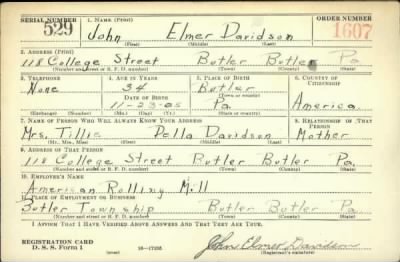 SERIAL NUMBER 1. NAME (Print) ORDER NUMBER
529 John Elmer Davidson 1607
(First) (Middle) (Last)
2. ADDRESS (Print)
118 College Street Butler Butler Pa
(Number and street or R. F. D. number) (Town) (County) (State)
3. TELEPHONE 4. AGE IN YEARS 5. PLACE OF BIRTH 6. COUNTRY OF CITIZENSHIP
None 34 Butler
DATE OF BIRTH (Town or county)
11-23-05 Pa. America
(Exchange) (Number) (Mo.) (Day) (Yr.) (State or country)
7. NAME OF PERSON WHO WILL ALWAYS KNOW YOUR ADDRESS 8. RELATIONSHIP OF THAT PERSON
Mrs. Tillie Della Davidson Mother
(Mr., Mrs., Miss) (First) (Middle) (Last)
9. ADDRESS OF THAT PERSON
118 College Street Butler Butler Pa.
(Number and street or R. F. D. number) (Town) (County) (State)
10. EMPLOYER'S NAME
American Rolling Mill
11. PLACE OF EMPLOYMENT OR BUSINESS
Butler Township Butler Butler Pa
(Number and street or R. F. D. number) (Town) (County) (State)
I AFFIRM THAT I HAVE VERIFIED ABOVE ANSWERS AND THAT THEY ARE TRUE.
REGISTRATION CARD
D. S. S. Form 1 16-17265 John Elmer Davidson
(Registrant's signature)